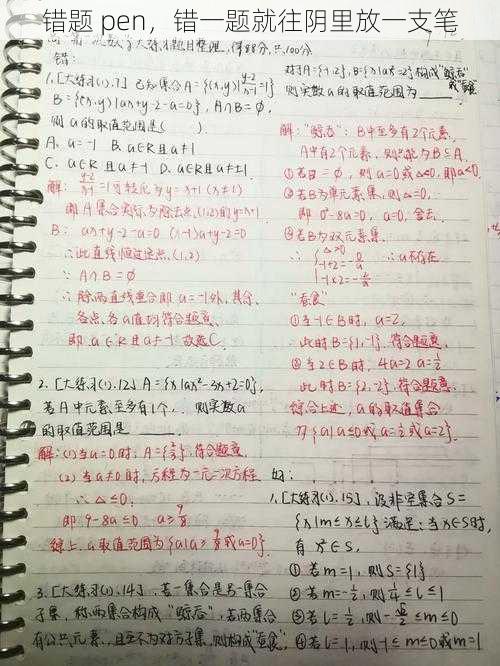 错题 pen，错一题就往阴里放一支笔
错：
1.[大练习(1).7] 已知集合A={(x,y)|(y-2)/(x-1)=1}
B={(x,y)|ax+y-2-a=0}，A∩B=∅，
则 a的取值范围是( )
A. a=-1 B. a∈R且a≠1
C. a∈R且a≠-1 D. a∈R且a≠±1.
解：(y-2)/(x-1)=1可转化为y=x+1 (x≠1)
即A集合实际为除去点(1,2)的y=x+1
B: ax+y-2-a=0 (x-1)a+y-2=0
∴此直线恒过定点(1,2)
∵A∩B=∅
∴除两直线重合即 a=-1外，其余
各点、各a值均符合题意.
即 a∈R且a≠-1 故选C
2.[大练习(1).12] A={x|ax²-3x+2=0},
若A中元素至多有1个， 则实数a
的取值范围是____.
解：(1)当a=0时，A={2/3}，符合题意
(2)当a≠0时，方程为一元二次方程
∴△≤0，
即 9-8a≤0 a≥9/8
综上，a取值范围为{a|a≥9/8或a=0}
3.[大练习(1).14] 若一集合是另一集合
子集，称两集合构成"鲸吞"，若两集合
有公共元素，且互不为对方子集，则构成"蚕食"，
对于A={-1,2}，B={x|ax²=2}构成"鲸吞"
或"蚕食"
则实数a的取值范围为____
解："鲸吞"：B中至多有2个元素.
A中有2个元素，则只能为B⊆A.
①若B=∅，则 a=0或△<0，即a<0.
②若B为单元素集，则△=0，
即 0²-8a=0，a=0，舍去.
③若B为双元素集，
△>0
∴a不存在
"蚕食"
①当-1∈B时，a=2，
此时B={1,-1}，符合题意.
②当2∈B时，4a=2 a=1/2
此时B={2,-2}，符合题意
综合上述，a的取值集合
为{a|a≤0或a=1/2或a=2}.
1.[大练习(1).15]，设非空集合S=
{x|m≤x≤l}满足：当x∈S时，
有 x²∈S，
①若m=1，则S={1}
②若m=-1/2，则1/4≤l≤1
③若l=1/2，则-√2/2≤m≤0
④若l=1，则-1≤m≤0或m=1